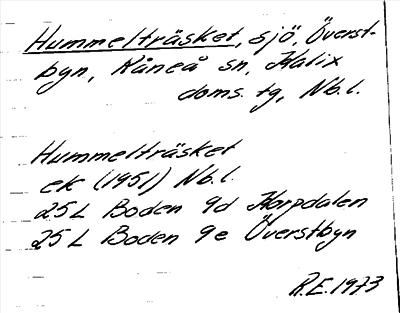 Hummelträsket, sjö, Överst-
byn, Råneå sn, Kalix
doms. tg, Nb.l.
Hummelträsket
ek (1951) Nb.l.
25L Boden 9d Korpdalen
25L Boden 9e Överstbyn
R.E. 1973